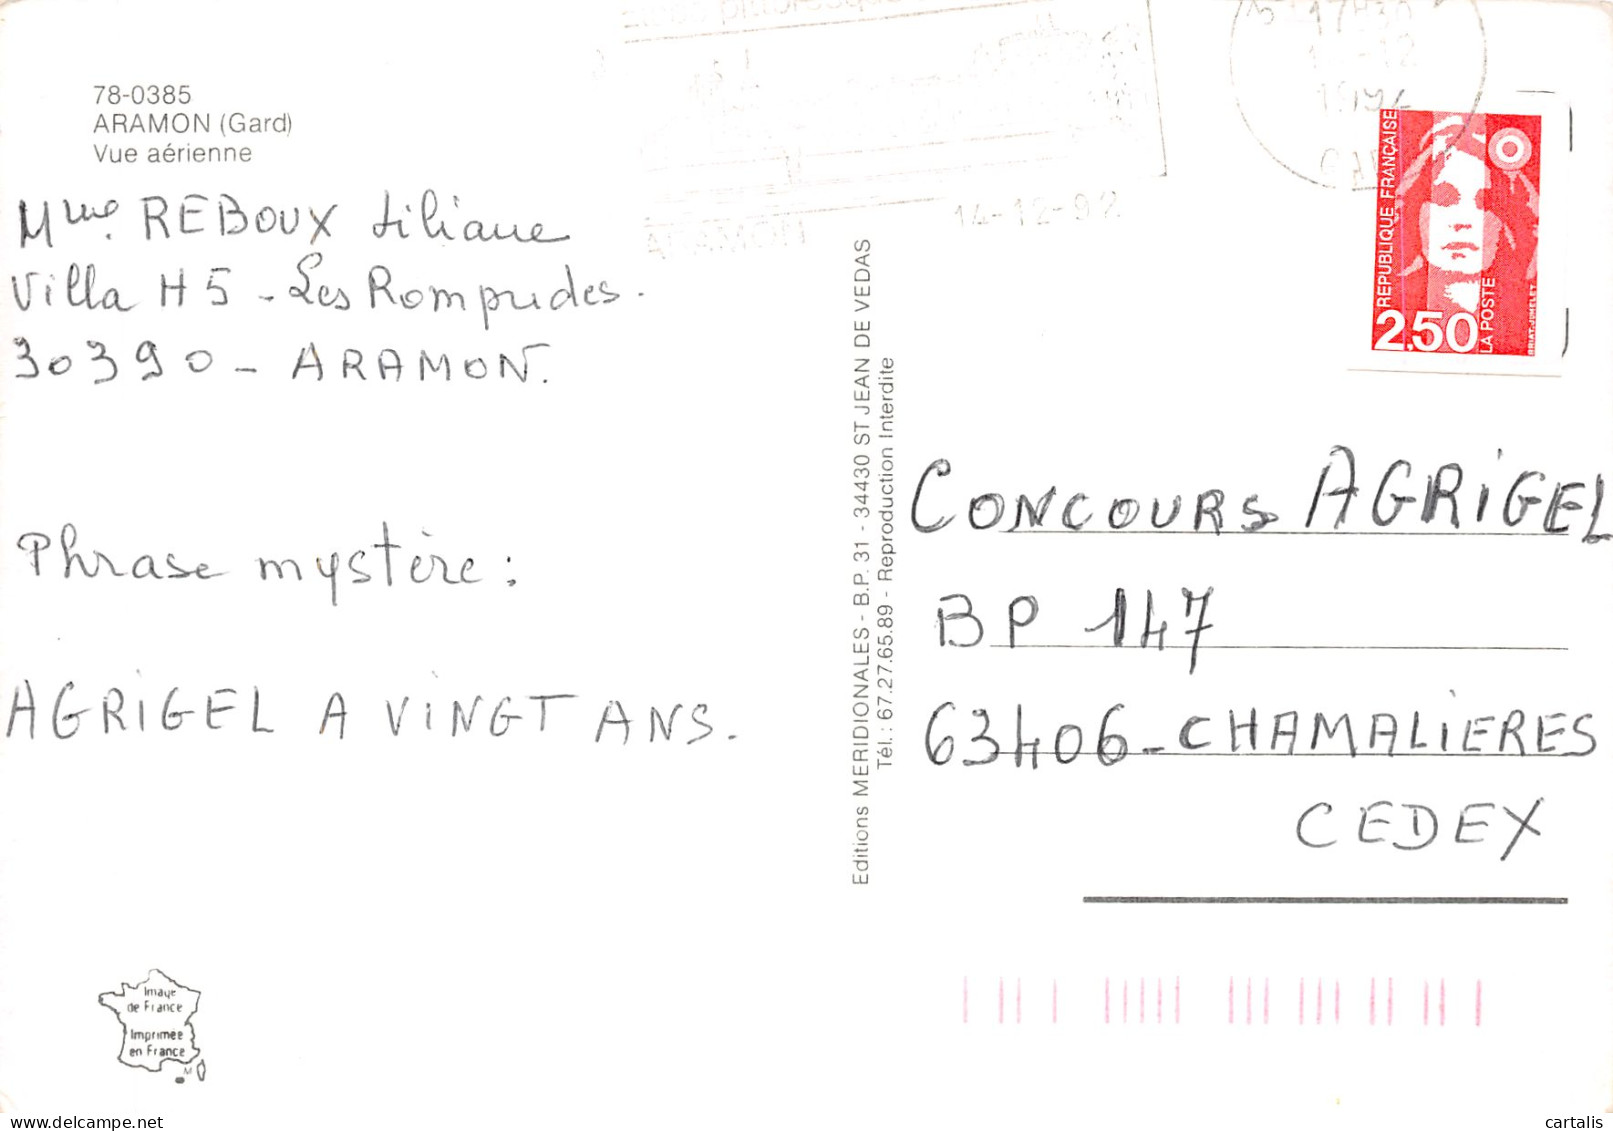 78-0385
ARAMON (Gard)
Vue aérienne
Mme. REBOUX Liliane
Villa H5 - Les Rompudes.
30390 - ARAMON.
Phrase mystère :
AGRIGEL A VINGT ANS.
Image
de France
Imprimée
en France
M
Editions MERIDIONALES - B.P. 31 - 34430 ST JEAN DE VEDAS
Tél. : 67.27.65.89 - Reproduction Interdite
pittoresque
ARAMON
14-12-92
17H30
REPUBLIQUE FRANÇAISE
2,50
LA POSTE
BRIAT-JUMELET
CONCOURS AGRIGEL
BP 147
63406 - CHAMALIERES
CEDEX
cartalis